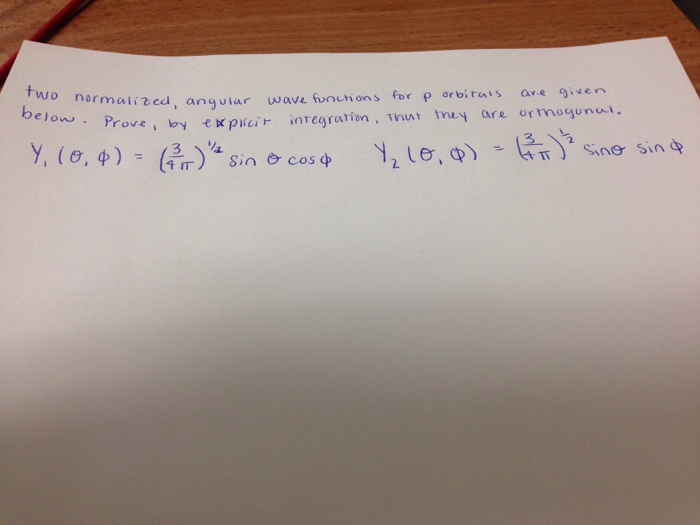 two normalized, angular wave functions for p orbitals are given
below. Prove, by explicit integration, that they are orthogonal.
Y₁ (θ, φ) = (3/4π)^1/2 sin θ cos φ Y₂ (θ, φ) = (3/4π)^1/2 sin θ sin φ